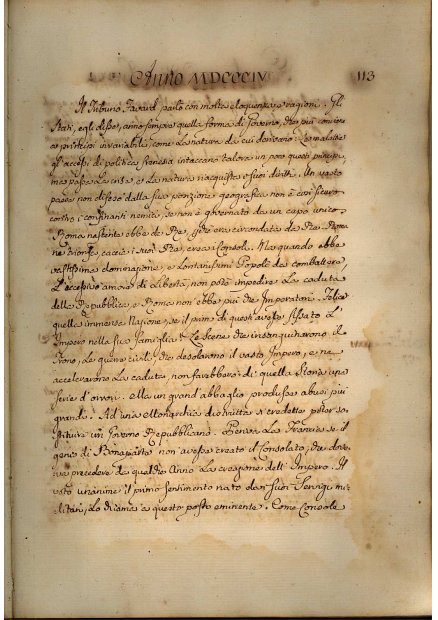 Anno MDCCCIV
113
Il Tribuno Favard parlò con molta eloquenza, e ragioni. Gli
Stati, egli disse, anno sempre quella forma di Governo, che più conviene
ai principi invariabili, come la natura da cui derivano. Le malattie
gl'accessi di politica frenesia intaccano talora un poco questi principi,
ma passa la crise, e la natura riacquista i suoi diritti. Un vasto
paese non difeso dalla sua posizione geografica non è mai sicuro
contro i confinanti nemici, se non è governato da un capo unico.
Roma nascente ebbe de' Re, essa era circondata da Re. Roma
ne trionfa, caccia i suoi Re, crea i Consoli. Ma quando ebbe
vastissima dominazione, e lontanissimi Popoli da combattere,
l'eccessivo amore di libertà, non potè impedire la caduta
della Repubblica, e Roma non ebbe più che Imperatori. Felice
quella immensa Nazione, se il primo di questi avesse fissato l'
Impero nella sua famiglia! Le scene che insanguinarono il
Trono, le guerre civili che desolarono il vasto Impero, e ne
accelerarono la caduta, non farebbero di quella Storia una
serie d'orrori. Ma un grand abbaglio produsse abusi più
grandi. Ad una Monarchia distrutta si credette poter so-
stituire un Governo Repubblicano. Periva la Francia se il
genio di Bonaparte non avesse creato il Consolato, che dove-
va precedere di qualche Anno la creazione dell' Impero. Il
voto unanime il primo sentimento nato da' suoi servigi mi-
litari, lo chiama a questo posto eminente. Come Console